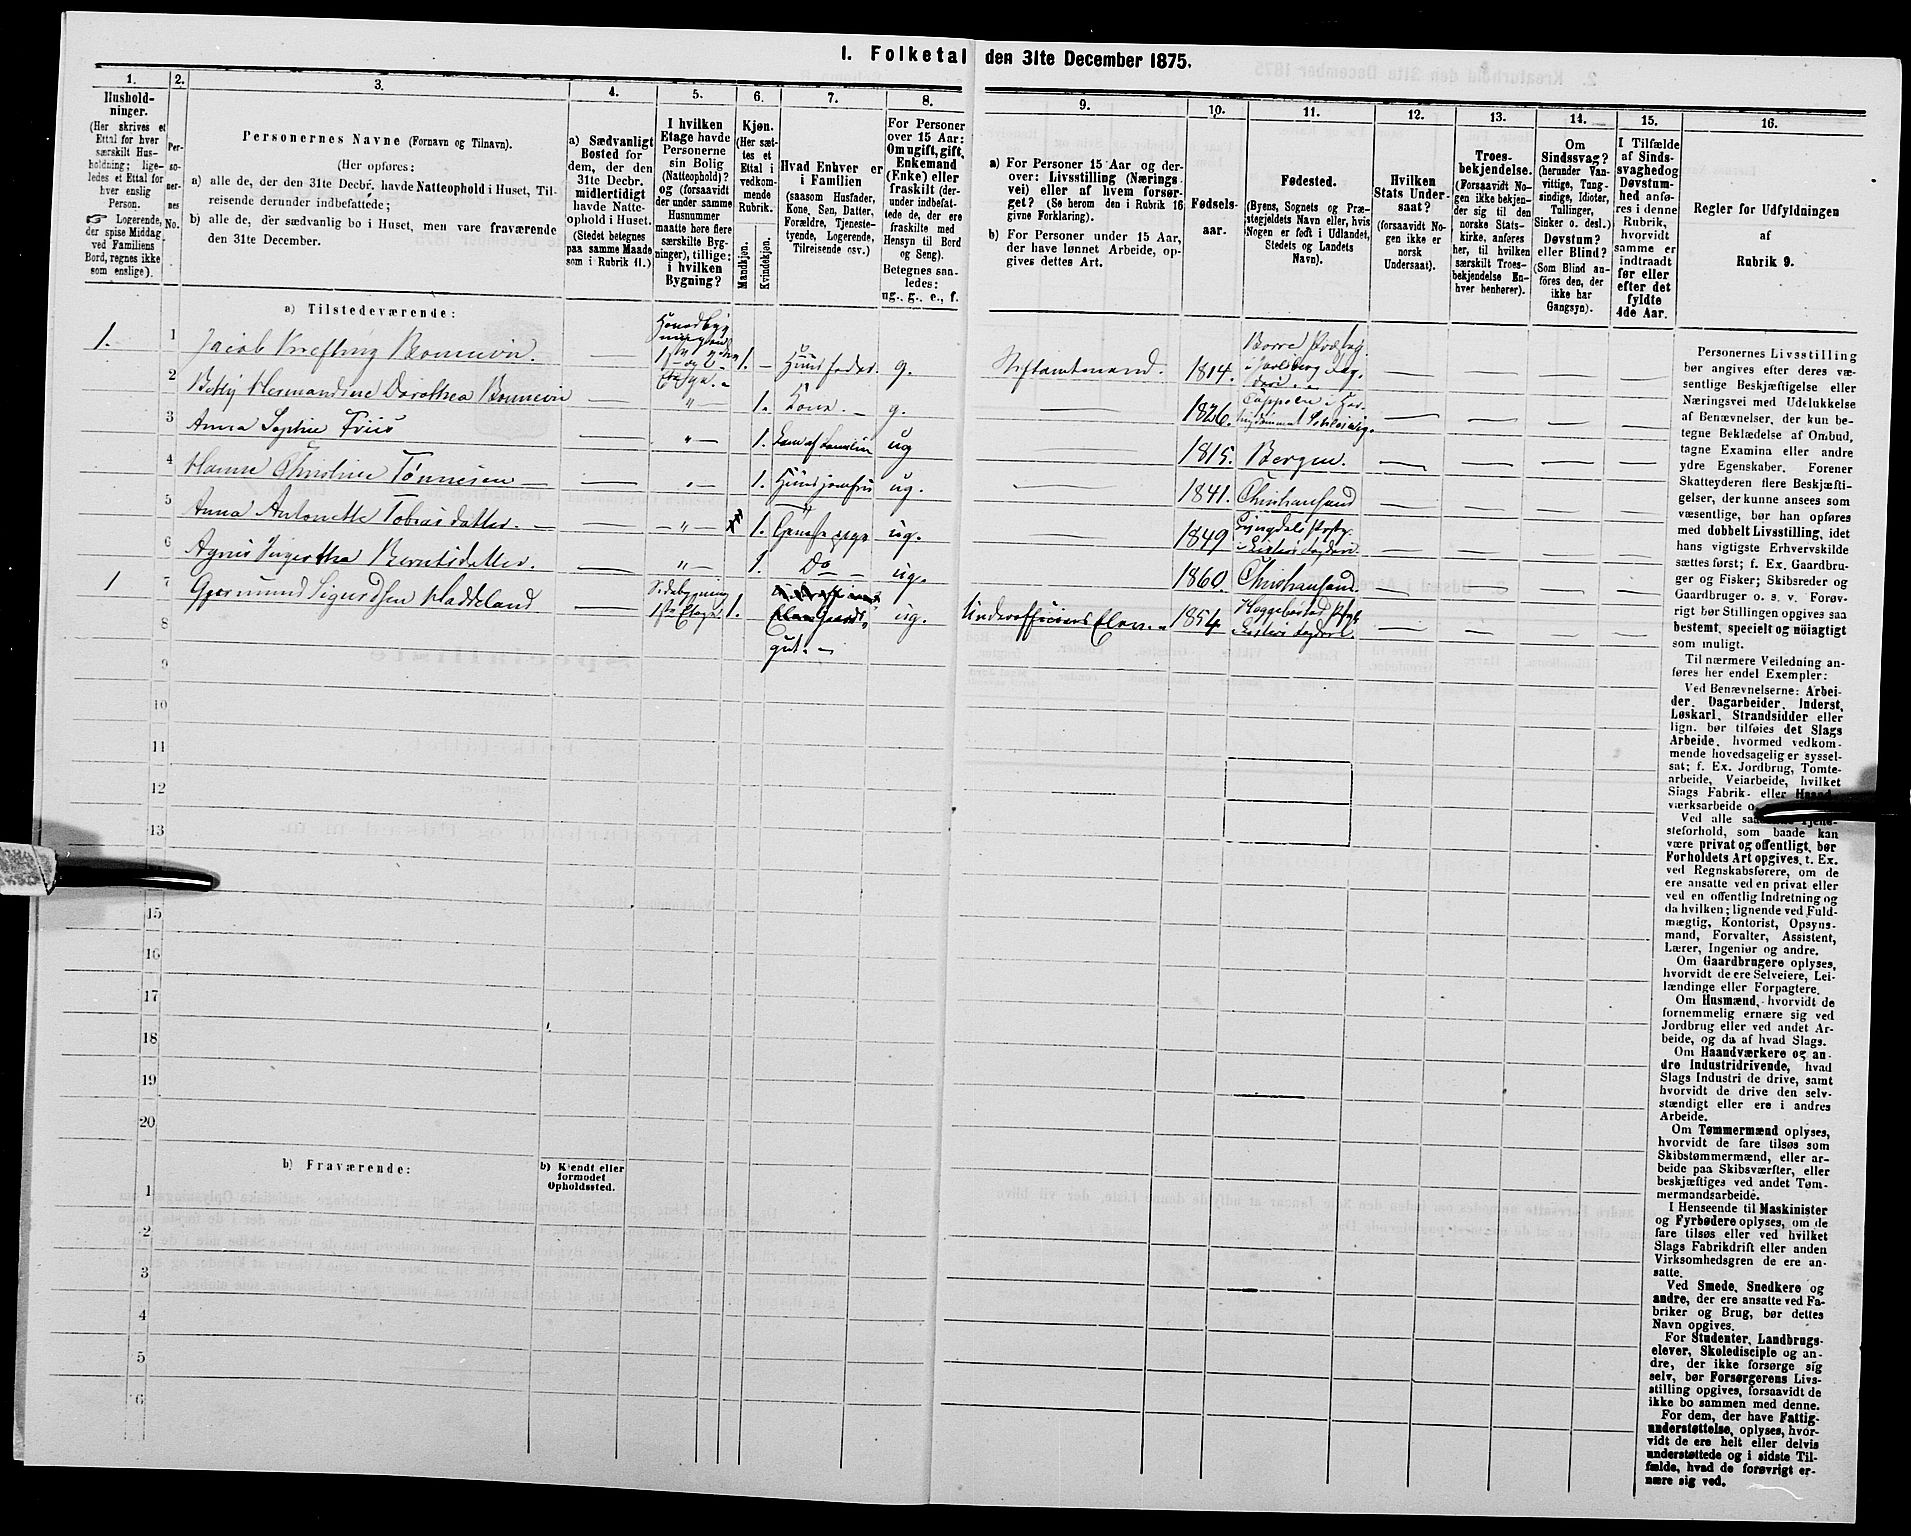 1. Folketal den 31te December 1875.
1.
Hushold-
ninger.
(Her skrives et
Ettal for hver
særskilt Hus-
holdning; lige-
ledes et Ettal for
hver enslig
Person.
☞ Logerende,
der spise Middag
ved Familiens
Bord, regnes ikke
som enslige).
2.
Per-
so-
ner-
nes
No.
3.
Personernes Navne (Fornavn og Tilnavn).
(Her opføres:
a) alle de, der den 31te Decbr. havde Natteophold i Huset, Til-
reisende derunder indbefattede;
b) alle de, der sædvanlig bo i Huset, men vare fraværende
den 31te December.
4.
a) Sædvanligt
Bosted for
dem, der den
31te Decbr.
midlertidigt
havde Natte-
ophold i Huset.
(Stedet betegnes
paa samme Maade
som i Rubrik 11.)
5.
I hvilken
Etage havde
Personerne
sin Bolig
(Natteophold)?
og (forsaavidt
der under samme
Husnummer
maatte høre flere
særskilte Byg-
ninger), tillige:
i hvilken
Bygning?
6.
Kjøn.
(Her sæt-
tes et
Ettal i
vedkom-
mende
Rubrik.
Mandkjøn.
Kvindekjøn.
7.
Hvad Enhver er
i Familien
(saasom Husfader,
Kone, Søn, Datter,
Forældre, Tjeneste-
tyende, Logerende,
Tilreisende osv.)
8.
For Personer
over 15 Aar:
Om ugift, gift,
Enkemand
(Enke) eller
fraskilt (der-
under indbefat-
tede de, der ere
fraskilte med
Hensyn til Bord
og Seng).
Betegnes saa-
ledes:
ug., g., e., f.
9.
a) For Personer 15 Aar og der-
over: Livsstilling (Nærings-
vei) eller af hvem forsør-
get? (Se herom den i Rubrik 16
givne Forklaring).
b) For Personer under 15 Aar,
der have lønnet Arbeide, op-
gives dettes Art.
10.
Fødsels-
aar.
11.
Fødested.
(Byens, Sognets og Præ-
stegjeldets Navn eller, hvis
Nogen er født i Udlandet,
Stedets og Landets
Navn).
12.
Hvilken
Stats Under-
saat?
(forsaavidt No-
gen ikke er
norsk
Undersaat).
13.
Troes-
bekjendelse.
(Forsaavidt No-
gen ikke bekjen-
der sig til den
norske Stats-
kirke, anføres
her, til hvilken
særskilt Troes-
bekjendelse En-
hver henhører).
14.
Om
Sindssvag?
(herunder Van-
vittige, Tung-
sindige, Idioter,
Tullinger,
Sinker o. desl.)
Døvstum?
eller Blind?
(Som Blind an-
føres den, der
ikke har
Gangsyn).
15.
I Tilfælde
af Sinds-
svaghed og
Døvstum-
hed anfø-
res i denne
Rubrik,
hvorvidt
samme er
indtraadt
før eller
efter det
fyldte
4de Aar.
16.
Regler for Udfyldningen
af
Rubrik 9.
a) Tilstedeværende:
1. 1 Jacob Krefting Bonnevie. 1. Huusfader. g. Stiftamtmand. 1814.
2 Betty Hermandine Dorothea Bonnevie " 1. Kone. g. 1826.
3 Anna Sophie Friis " 1. ug 1815. Bergen.
4 Hanne Christine Tønnesen " 1. Huusjomfru ug. 1841. Christiansand
5 Anna Antonette Tobiasdatter. " 1. ug. 1849
6 Agnes Berntsdatter. " 1. Do ug. 1860. Christiansand
1 7 Gjermund Sigurdsen Haddeland Sidebygning 1ste Etage 1. ug. Underofficers Elev. 1854
8 gut.
9
10
11
12
13
15
16
17
18
19
20
b) Fraværende:
b) Kjendt eller
formodet
Opholdssted.
1
2
3
4
5
6
Personernes Livsstilling
bør angives efter deres væ-
sentlige Beskjæftigelse eller
Næringsvei med Udelukkelse
af Benævnelser, der kun be-
tegne Beklædelse af Ombud,
tagne Examina eller andre
ydre Egenskaber. Forener
Skatteyderen flere Beskjæfti-
gelser, der kunne ansees som
væsentlige, bør han opføres
med dobbelt Livsstilling, idet
hans vigtigste Erhvervskilde
sættes først; f. Ex. Gaardbru-
ger og Fisker; Skibsreder og
Gaardbruger o. s. v. Forøv-
rigt bør Stillingen opgives saa
bestemt, specielt og nøiagtigt
som muligt.
Til nærmere Veiledning an-
føres her endel Exempler:
Ved Benævnelserne: Arbei-
der, Dagarbeider, Inderst,
Løskarl, Strandsidder eller
lign. bør tilføies det Slags
Arbeide, hvormed vedkom-
mende hovedsagelig er syssel-
sat; f. Ex. Jordbrug, Tomte-
arbeide, Veiarbeide, hvilket
Slags Fabrik- eller Haand-
værksarbeide
Ved alle
steforhold, som baade kan
være privat og offentligt, bør
Forholdets Art opgives, t. Ex.
ved Regnskabsførere, om de
ere ansatte ved en privat eller
ved en offentlig Indretning og
da hvilken; lignende ved Fuld-
mægtig, Kontorist, Opsyns-
mand, Forvalter, Assistent,
Lærer, Ingeniør og andre.
Om Gaardbrugere oplyses,
hvorvidt de ere Selveiere, Lei-
lændinge eller Forpagtere.
Om Husmænd, hvorvidt de
fornemmelig ernære sig ved
Jordbrug eller ved andet Ar-
beide, og da af hvad Slags.
Om Haandværkere og an-
dre Industridrivende, hvad
Slags Industri de drive, samt
hvorvidt de drive den selv-
stændigt eller ere i andres
Arbeide.
Om Tømmermænd oplyses,
hvorvidt de fare tilsøs som
Skibstømmermænd, eller ar-
beide paa Skibsværfter, eller
beskjæftiges ved andet Tøm-
mermandsarbeide.
I Henseende til Maskinister
og Fyrbødere oplyses, om de
fare tilsøs eller ved hvilket
Slags Fabrikdrift eller anden
Virksomhedsgren de ere an-
satte.
Ved Smede, Snedkere og
andre, der ere ansatte ved Fa-
briker og Brug, bør dettes
Navn opgives.
For Studenter, Landbrugs-
elever, Skoledisciple og an-
dre, der ikke forsørge sig
selv, bør Forsørgerens Livs-
stilling opgives, forsaavidt de
ikke bo sammen med denne.
For dem, der have Fattig-
understøttelse, oplyses, hvor-
vidt de ere helt eller delvis
understøttede og i sidste Til-
fælde, hvad de forøvrigt er-
nære sig ved.